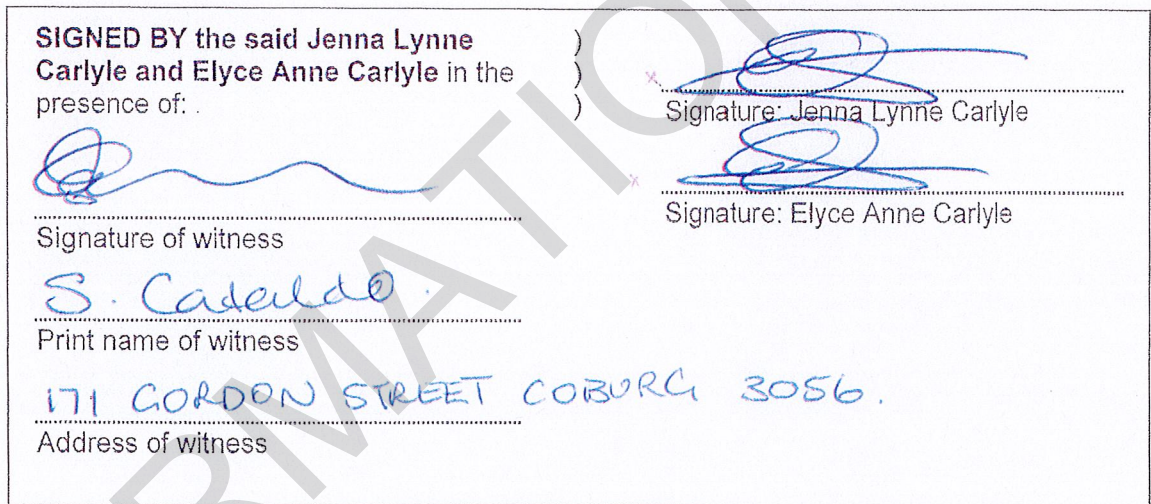 SIGNED BY the said Jenna Lynne
Carlyle and Elyce Anne Carlyle in the
presence of: .
)
)
)
Signature: Jenna Lynne Carlyle
Signature: Elyce Anne Carlyle
Signature of witness
S. Cataldo.
Print name of witness
171 GORDON STREET COBURG 3056.
Address of witness